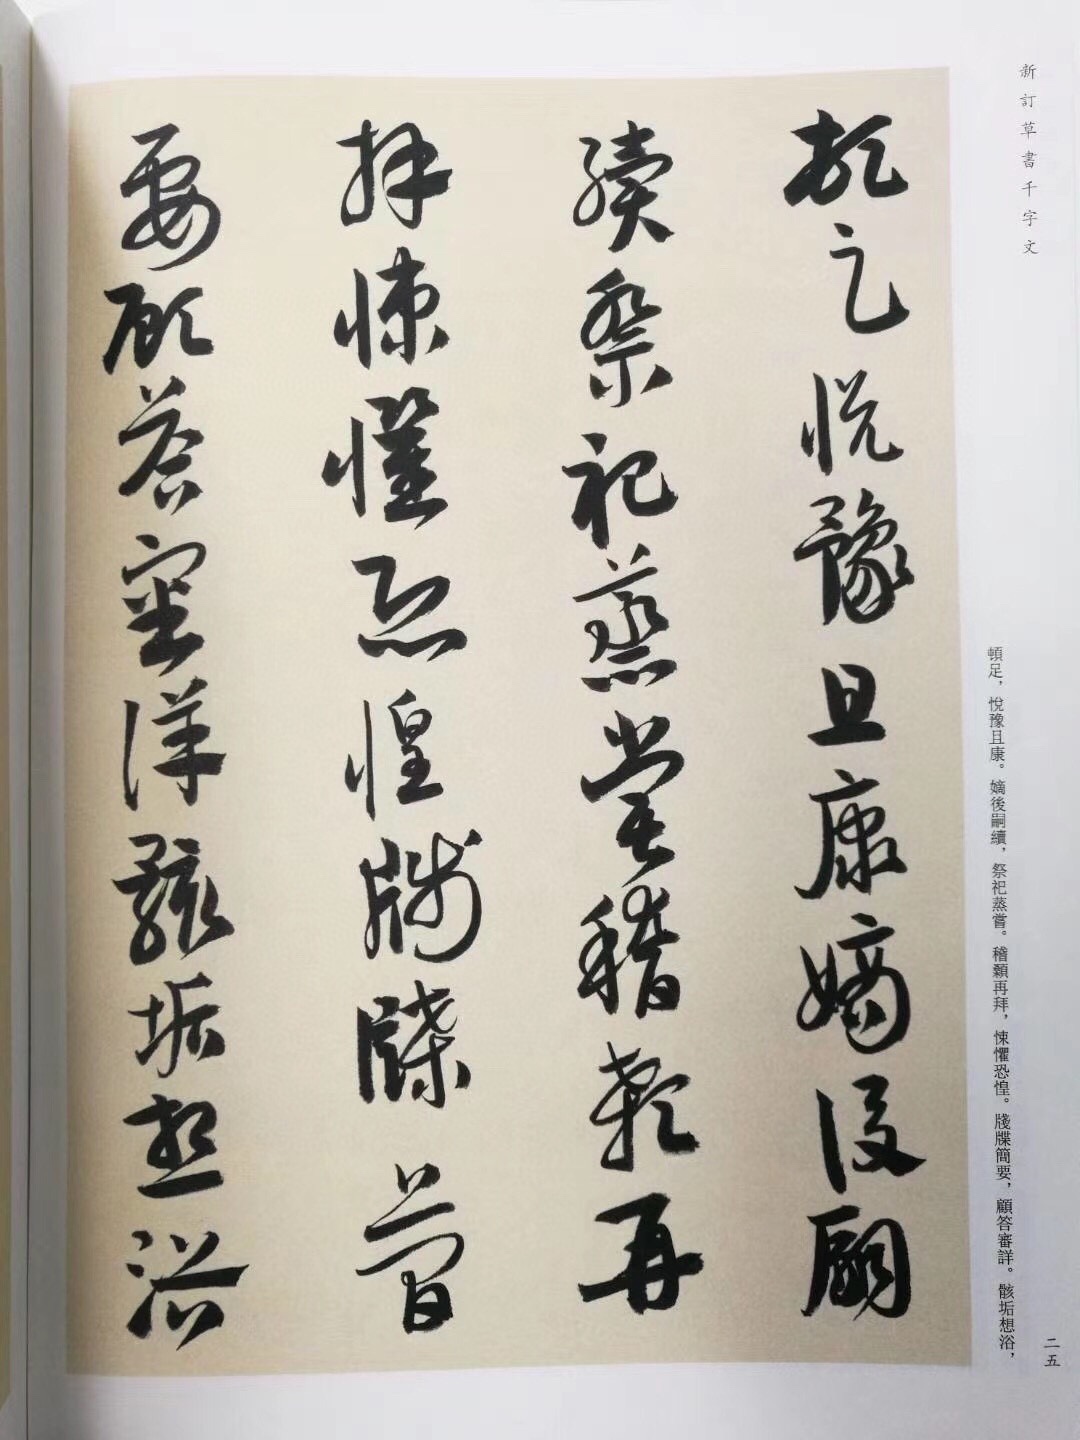 新訂草書千字文
頓足，悅豫且康。嫡後嗣續，祭祀蒸嘗。稽顙再拜，悚懼恐惶。牋牒簡要，顧答審詳。骸垢想浴，
二五
頓足悅豫且康嫡後嗣
續祭祀蒸嘗稽顙再
拜悚懼恐惶牋牒簡
要顧答審詳骸垢想浴